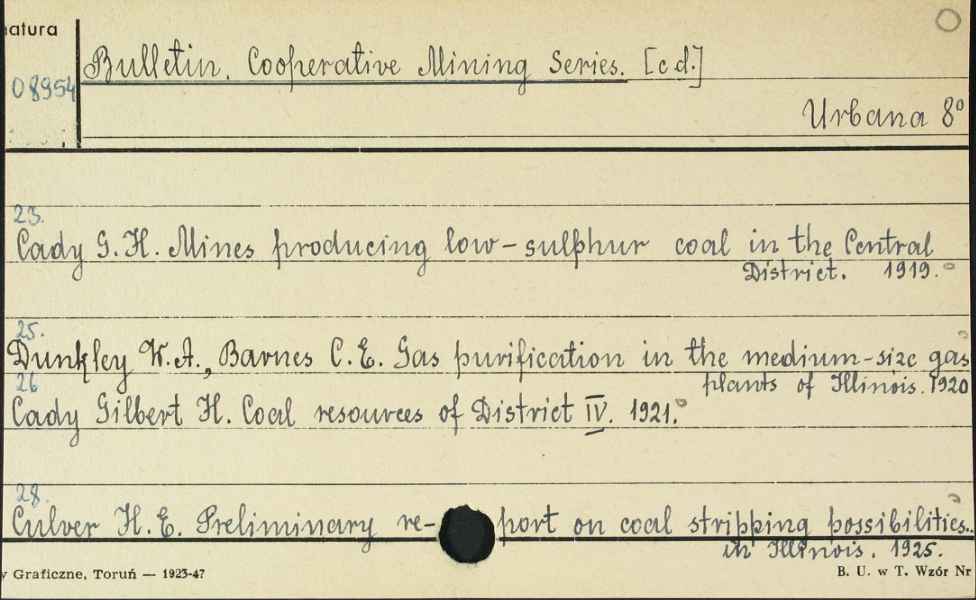 natura
08954
Bulletin. Cooperative Mining Series. [c d.]
Urbana 8º
23.
Cady G. H. Mines producing low-sulphur coal in the Central
District. 1919.
25.
Dunkley W. A., Barnes C. E. Gas purification in the medium-size gas
plants of Illinois. 1920
26
Cady Gilbert H. Coal resources of District IV. 1921.
28.
Culver H. E. Preliminary re- port on coal stripping possibilities.
in Illinois. 1925.
y Graficzne, Toruń — 1923-47
B. U. w T. Wzór Nr